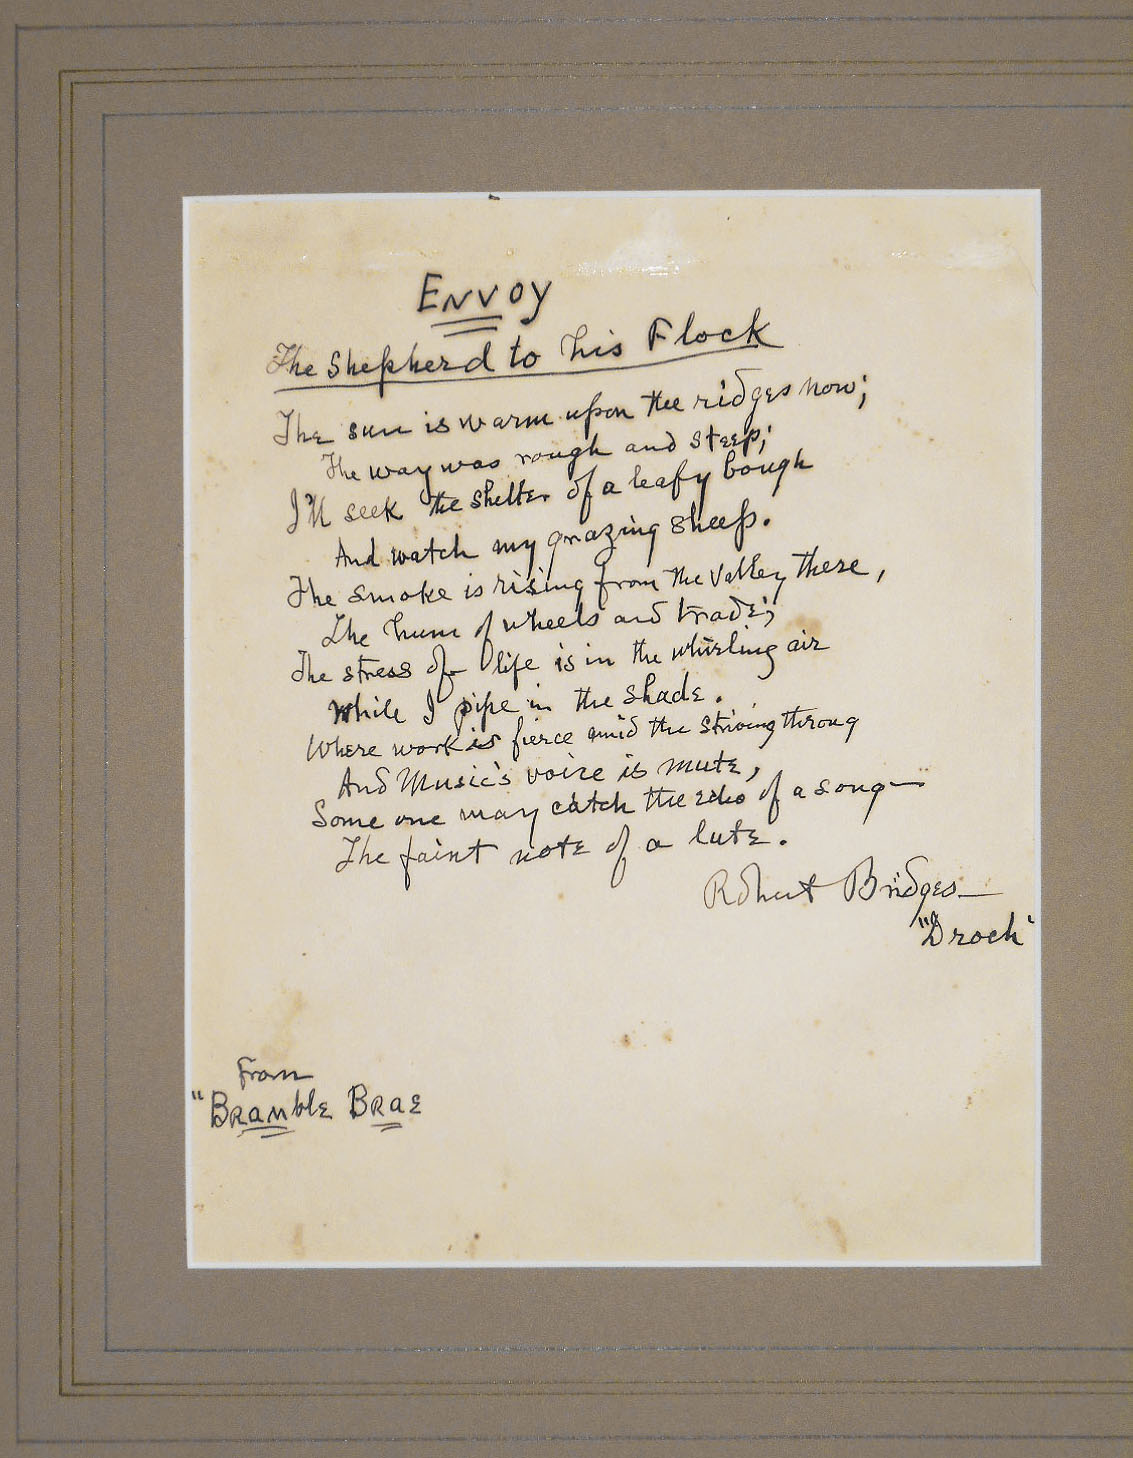 Envoy
The Shepherd to his Flock
The sun is warm upon the ridges now;
The way was rough and steep;
I'll seek the shelter of a leafy bough
And watch my grazing sheep.
The smoke is rising from the valley there,
The hum of wheels and trade;
The stress of life is in the whirling air
While I pipe in the shade.
Where work is fierce amid the striving throng
And Music's voice is mute,
Some one may catch the echo of a song—
The faint note of a lute.
Robert Bridges—
"Droch"
From
"Bramble Brae